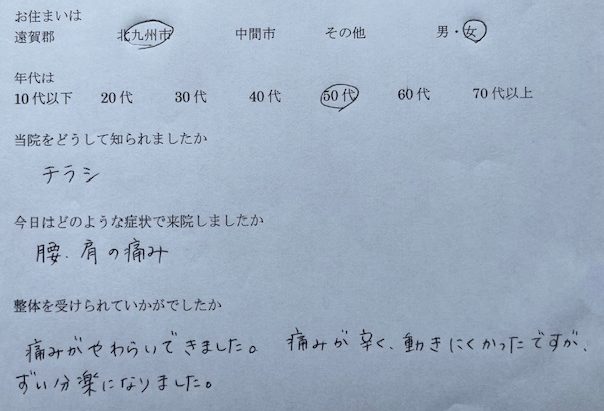 お住まいは
遠賀郡 北九州市 中間市 その他 男・女
年代は
10代以下 20代 30代 40代 50代 60代 70代以上
当院をどうして知られましたか
チラシ
今日はどのような症状で来院しましたか
腰、肩の痛み
整体を受けられていかがでしたか
痛みがやわらいできました。痛みが辛く、動きにくかったですが、
ずい分楽になりました。